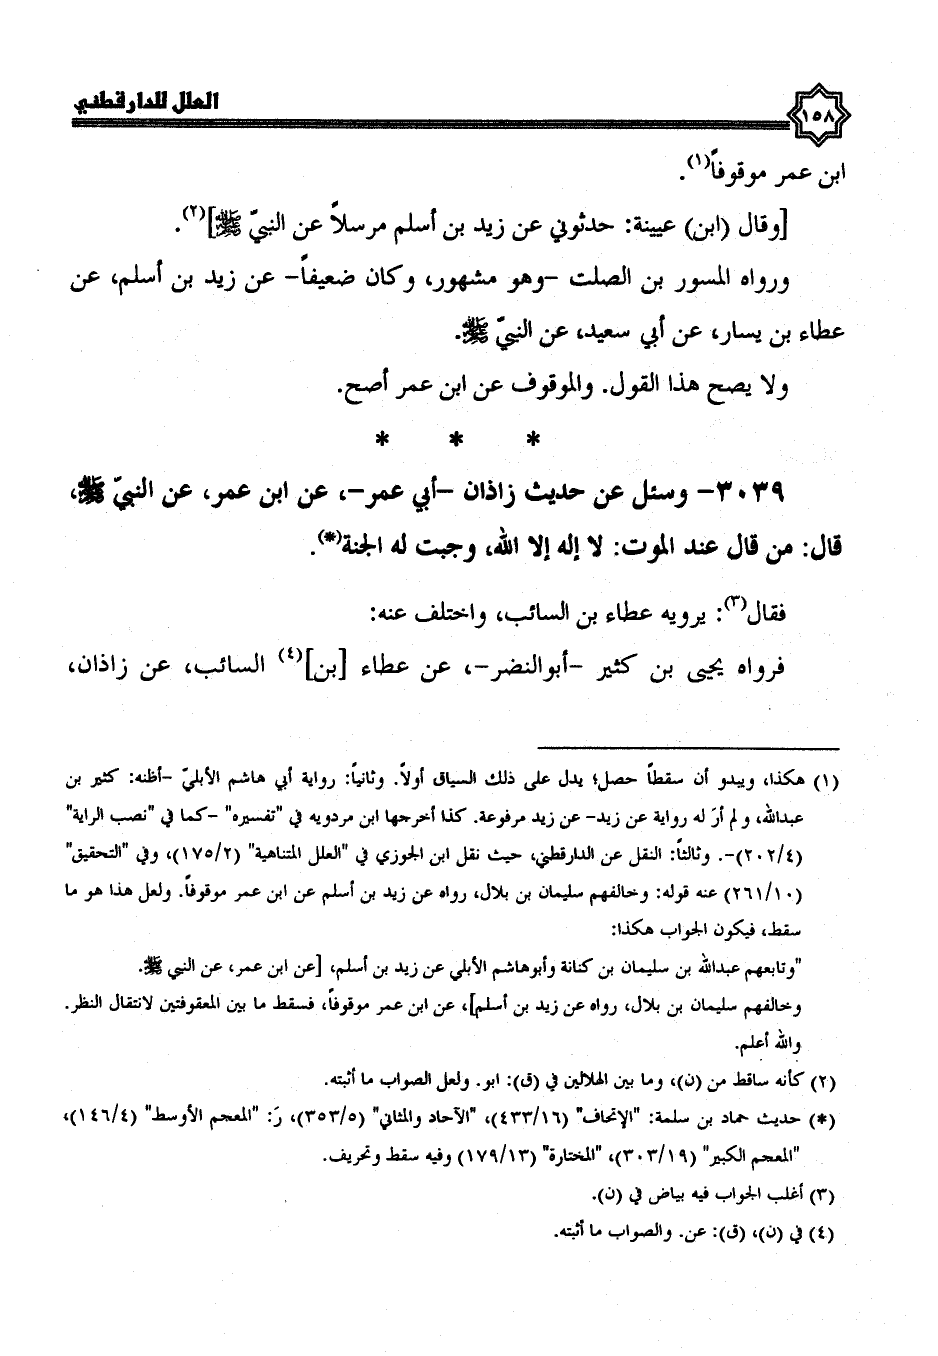 العلل للدارقطني
١٥٨
ابن عمر موقوفاً(١).
[وقال (ابن) عيينة: حدثوني عن زيد بن أسلم مرسلاً عن النبيّ ﷺ](٢).
ورواه المسور بن الصلت -وهو مشهور، وكان ضعيفاً- عن زيد بن أسلم، عن
عطاء بن يسار، عن أبي سعيد، عن النبيّ ﷺ.
ولا يصح هذا القول. والموقوف عن ابن عمر أصح.
* * *
٣٠٣٩- وسئل عن حديث زاذان -أبي عمر-، عن ابن عمر، عن النبيّ ﷺ،
قال: من قال عند الموت: لا إله إلا الله، وجبت له الجنة(*).
فقال(٣): يرويه عطاء بن السائب، واختلف عنه:
فرواه يحيى بن كثير -أبوالنضر-، عن عطاء [بن](٤) السائب، عن زاذان،
(١) هكذا، ويبدو أن سقطاً حصل؛ يدل على ذلك السياق أولاً. وثانياً: رواية أبي هاشم الأبليّ -أظنه: كثير بن
عبدالله، ولم أرَ له رواية عن زيد- عن زيد مرفوعة. كذا أخرجها ابن مردويه في "تفسيره" -كما في "نصب الراية"
(٢٠٢/٤)-. وثالثاً: النقل عن الدارقطني، حيث نقل ابن الجوزي في "العلل المتناهية" (١٧٥/٢)، وفي "التحقيق"
(٢٦١/١٠) عنه قوله: وخالفهم سليمان بن بلال، رواه عن زيد بن أسلم عن ابن عمر موقوفاً. ولعل هذا هو ما
سقط، فيكون الجواب هكذا:
"وتابعهم عبدالله بن سليمان بن كنانة وأبوهاشم الأبلي عن زيد بن أسلم، [عن ابن عمر، عن النبي ﷺ.
وخالفهم سليمان بن بلال، رواه عن زيد بن أسلم]، عن ابن عمر موقوفاً، فسقط ما بين المعقوفتين لانتقال النظر.
والله أعلم.
(٢) كأنه ساقط من (ن)، وما بين الهلالين في (ق): ابو. ولعل الصواب ما أثبته.
(*) حديث حماد بن سلمة: "الإتحاف" (٤٣٣/١٦)، "الآحاد والمثاني" (٣٥٣/٥)، رَ: "المعجم الأوسط" (١٤٦/٤)،
"المعجم الكبير" (٣٠٣/١٩)، "المختارة" (١٧٩/١٣) وفيه سقط وتحريف.
(٣) أغلب الجواب فيه بياض في (ن).
(٤) في (ن)، (ق): عن. والصواب ما أثبته.